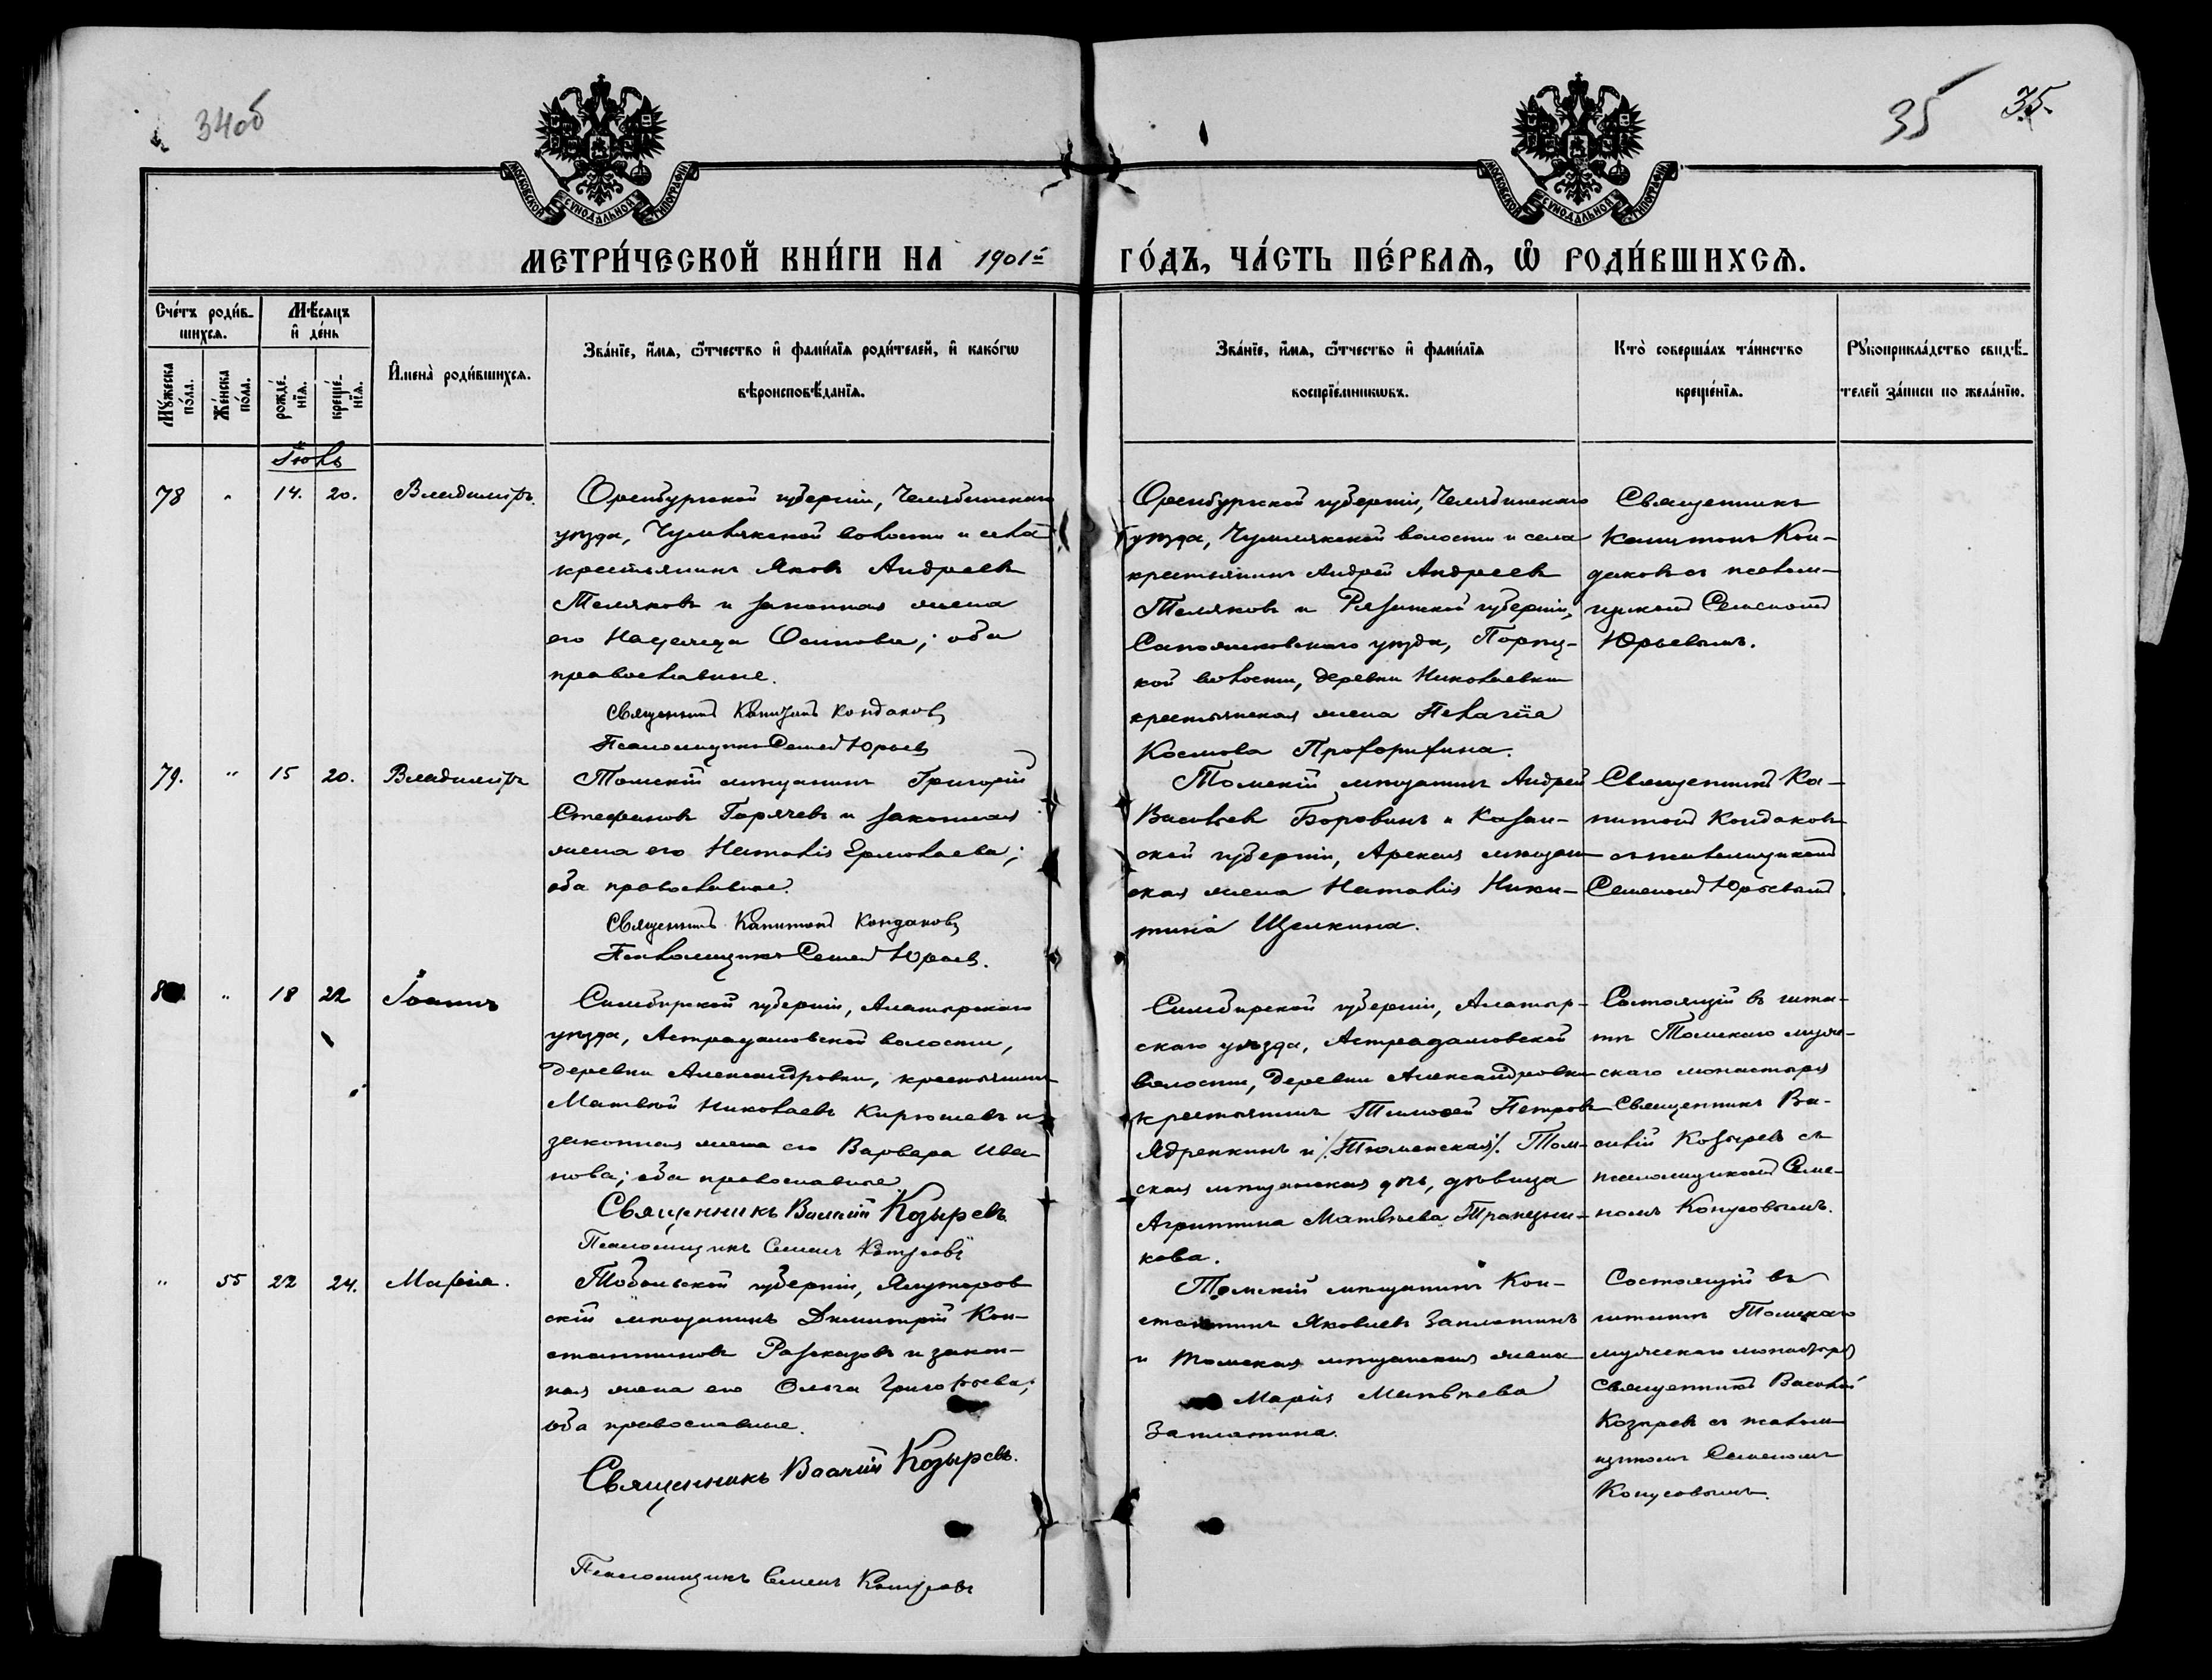 34об
35
35.
МОСКОВСКОЙ СУНОДАЛЬНОЙ ТИПОГРАФІИ
МОСКОВСКОЙ СУНОДАЛЬНОЙ ТИПОГРАФІИ
МЕТРИ́ЧЕСКОЙ КНИ́ГИ НА 1901й ГО́ДЪ, ЧА́СТЬ ПЕ́РВАѦ, Ѡ҆ РОДИ́ВШИХСѦ.
Сче́тъ роди́в-
шихсѧ.
Мѣ́сѧцъ
и҆ де́нь
Мꙋ́жеска
по́ла.
Же́нска
по́ла.
рожде́-
нїѧ.
креще́-
нїѧ.
И҆мена̀ роди́вшихсѧ.
Зва́нїе, и҆́мѧ, ѻ҆́тчество и҆ фами́лїѧ роди́телей, и҆ како́гѡ
вѣроисповѣ́данїѧ.
Зва́нїе, и҆́мѧ, ѻ҆́тчество и҆ фами́лїѧ
воспрїе́мникѡвъ.
Кто̀ соверша́лъ та́инство
креще́нїѧ.
Рꙋкоприкла́дство свидѣ́-
телей за́писи по жела́нїю.
Іюль
78 " 14. 20. Владиміръ.
Оренбургской губерніи, Челябинскаго
уѣзда, Чумлякской волости и села
крестьянинъ Яковъ Андреевъ
Теляковъ и законная жена
его Надежда Осипова; оба
православные.
Священникъ Капитонъ Кондаковъ
Псаломщикъ Семенъ Юрьевъ
Оренбургской губерніи, Челябинскаго
уѣзда, Чумлякской волости и села
крестьянинъ Андрей Андреевъ
Теляковъ и Рязанской губерніи,
Сапожковскаго уѣзда,
кой волости, деревни Николаевки
крестьянская жена Пелагія
Космова
Священникъ
Капитонъ Кон-
даковъ съ псалом-
щикомъ Семеномъ
Юрьевымъ.
79. " 15 20. Владиміръ
Томскій мѣщанинъ Григорій
Стефановъ Горячевъ и законная
жена его Наталія Ермолаева;
оба православные.
Священникъ Капитонъ Кондаковъ
Псаломщикъ Семенъ Юрьевъ.
Томскій мѣщанинъ Андрей
Васильевъ Боровинъ и Казан-
ской губерніи, Арская мѣщан-
ская жена Наталія Ники-
тина Щелкина.
Священникъ Ка-
питонъ Кондаковъ
съ псаломщикомъ
Семеномъ Юрьевымъ.
80. " 18 22 Іоаннъ
Симбирской губерніи, Алатырскаго
уѣзда, Астрадамовской волости,
деревни Александровки, крестьянинъ
Матвѣй Николаевъ Кирюшевъ и
законная жена его Варвара Ива-
нова; оба православные.
Священникъ Василій Козыревъ.
Псаломщикъ Семенъ Конусовъ
Симбирской губерніи, Алатыр-
скаго уѣзда, Астрадамовской
волости, деревни Александровки
крестьянинъ Тимофей Петровъ
Ядренкинъ и /.Тюменская/. Том-
ская мѣщанская дочь, дѣвица
Агриппина Матвѣева Трапезни-
кова.
Состоящій въ шта-
тѣ Томскаго муж-
скаго монастыря
Священникъ Ва-
силій Козыревъ съ
псаломщикомъ Семе-
номъ Конусовымъ.
" 55 22 24. Марѳа.
Тобольской губерніи, Ялуторов
скій мѣщанинъ Димитрій Кон-
стантиновъ Разсказовъ и закон-
ная жена его Ольга Григорьева;
оба православные.
Священникъ Василій Козыревъ.
Псаломщикъ Семенъ Конусовъ
Томскій мѣщанинъ Кон-
стантинъ Яковлевъ Заплатинъ
и Томская мѣщанская жена
Марія Матвѣева
Заплатина.
Состоящій въ
штатѣ Томскаго
мужскаго монастыря
Священникъ Василій
Козыревъ съ псалом-
щикомъ Семеномъ
Конусовымъ.